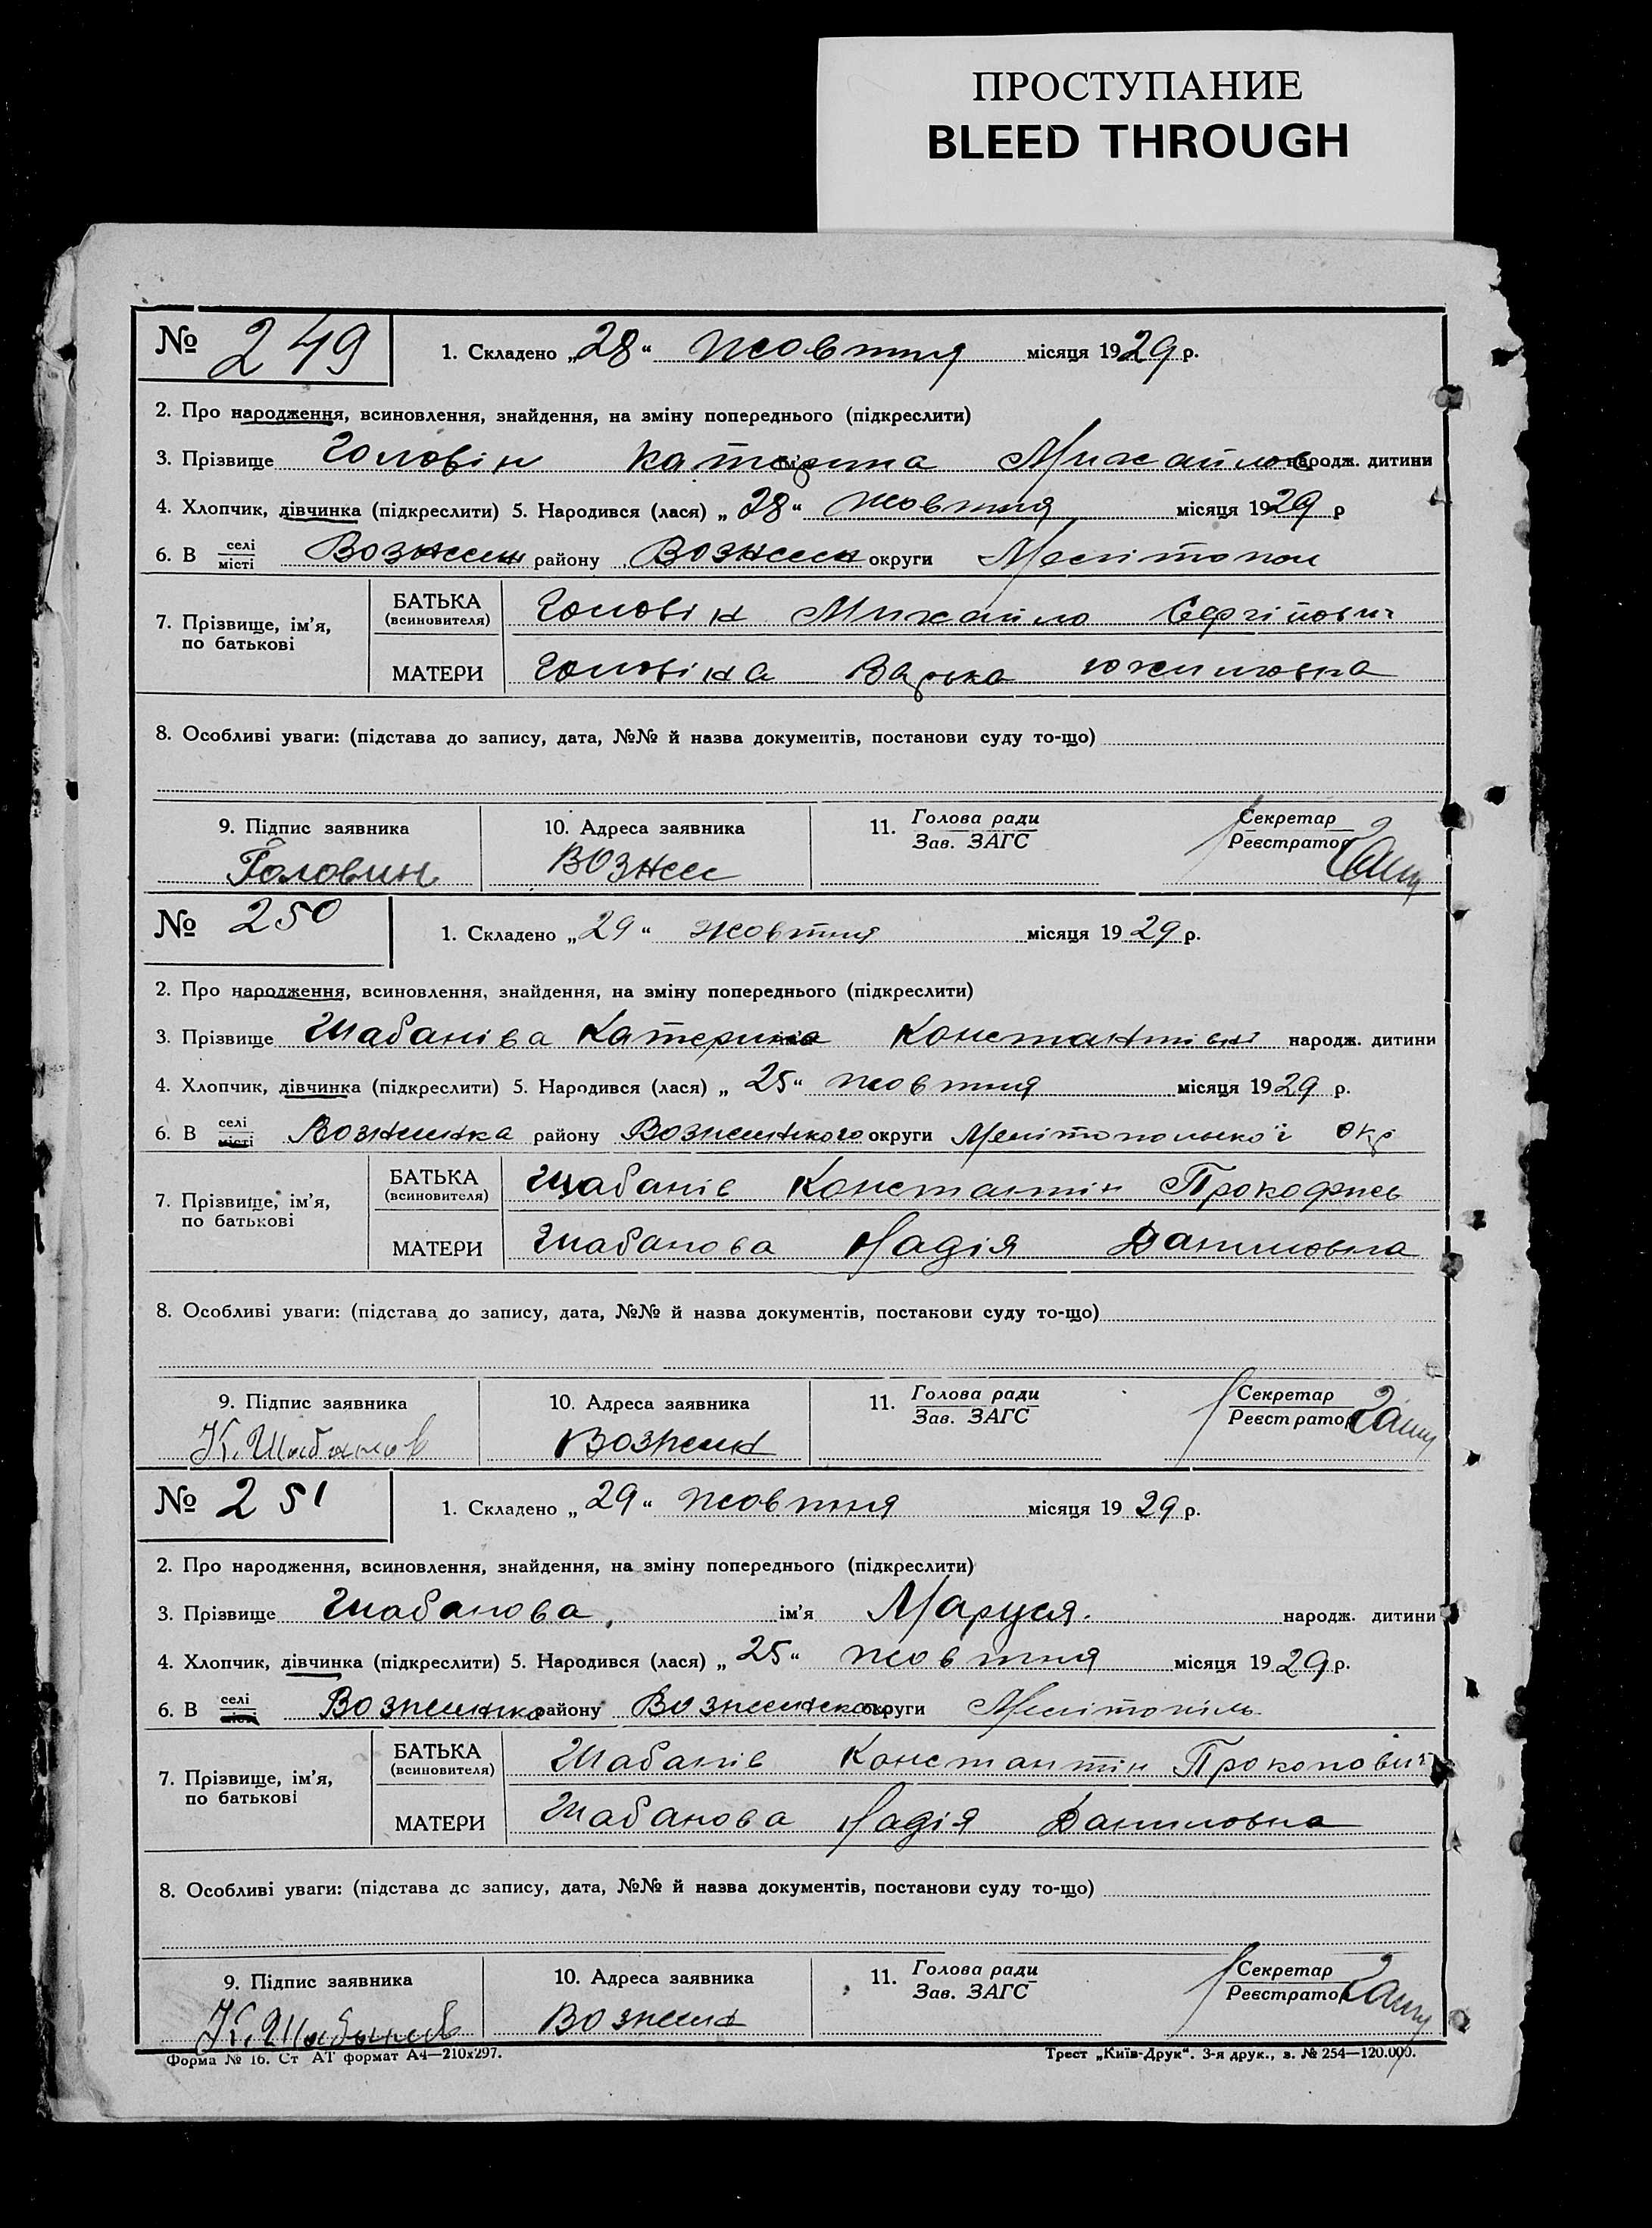 ПРОСТУПАНИЕ
BLEED THROUGH
№ 249 1. Складено „28“ жовтня місяця 1929 р.
2. Про народження, всиновлення, знайдення, на зміну попереднього (підкреслити)
3. Прізвище Головін Катерина Михайлов народж. дитини
4. Хлопчик, дівчинка (підкреслити) 5. Народився (лася) „28“ жовтня місяця 1929 р
6. В селі місті Вознесен району Вознесен округи Мелітопол
7. Прізвище, ім’я, по батькові
БАТЬКА (всиновителя) Головін Михайло Сергійович
МАТЕРИ Головіна Варька
8. Особливі уваги: (підстава до запису, дата, №№ й назва документів, постанови суду то-що)
9. Підпис заявника 10. Адреса заявника 11. Голова ради Зав. ЗАГС Секретар Реєстратор
Головин Вознес
№ 250 1. Складено „29“ жовтня місяця 1929 р.
2. Про народження, всиновлення, знайдення, на зміну попереднього (підкреслити)
3. Прізвище Шабаніва Катерина Константинівні народж. дитини
4. Хлопчик, дівчинка (підкреслити) 5. Народився (лася) „25“ жовтня місяця 1929 р.
6. В селі місті Вознесенка району Вознесенского округи Мелітопольскої окр
7. Прізвище, ім’я, по батькові
БАТЬКА (всиновителя) Шабанів Константін Прокофиев
МАТЕРИ Шабанова Надія Даниловна
8. Особливі уваги: (підстава до запису, дата, №№ й назва документів, постанови суду то-що)
9. Підпис заявника 10. Адреса заявника 11. Голова ради Зав. ЗАГС Секретар Реєстратор
К. Шабанов Вознесен
№ 251 1. Складено „29“ жовтня місяця 1929 р.
2. Про народження, всиновлення, знайдення, на зміну попереднього (підкреслити)
3. Прізвище Шабанова, ім’я Маруся. народж. дитини
4. Хлопчик, дівчинка (підкреслити) 5. Народився (лася) „25“ жовтня місяця 1929 р.
6. В селі місті Вознесенка району Вознесенско округи Мелітопіль
7. Прізвище, ім’я, по батькові
БАТЬКА (всиновителя) Шабанів Константін Прокопович
МАТЕРИ Шабанова Надія Даниловна
8. Особливі уваги: (підстава до запису, дата, №№ й назва документів, постанови суду то-що)
9. Підпис заявника 10. Адреса заявника 11. Голова ради Зав. ЗАГС Секретар Реєстратор
К. Шабанов Вознесен
Форма № 16. Ст АТ формат А4—210х297. Трест „Київ-Друк“. 3-я друк., з. № 254—120.000.